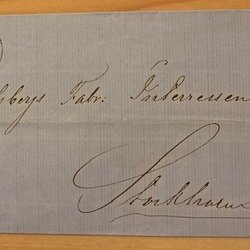 sbergs Fabr: Interressen
Stockholm